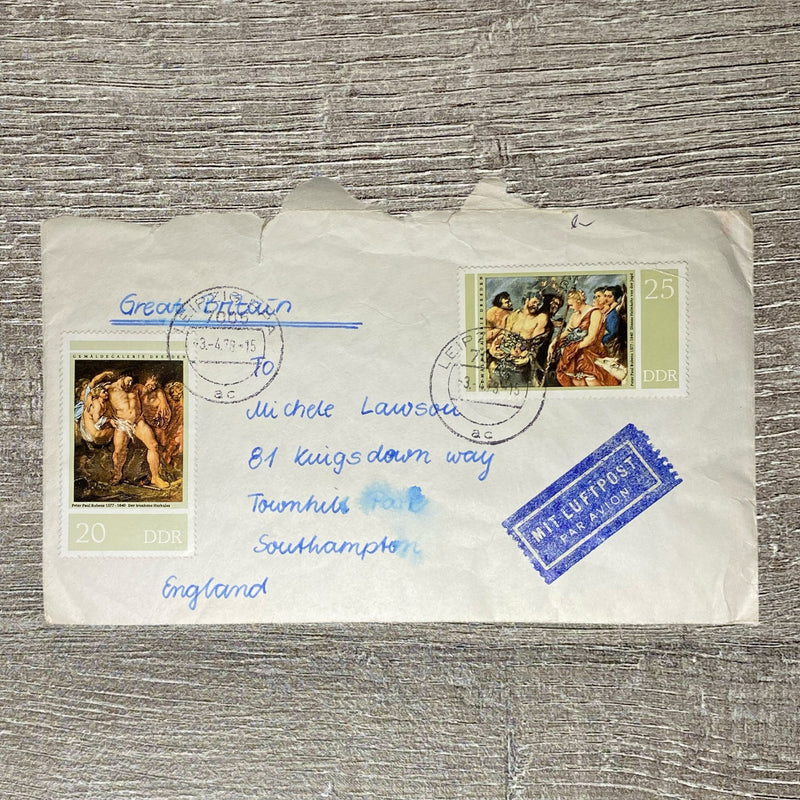 Great Britain
LEIPZIG BPA
-3.-4.78-15
ac
GEMÄLDEGALERIE DRESDEN
Peter Paul Rubens 1577-1640 Der trunkene Herkules
20 DDR
LEIPZIG
ac
DRESDEN
Peter Paul Rubens 1577-1640 Dianas Heimkehr von der Jagd
25
DDR
To
Michele Lawson
81 Kingsdown way
Townhill Park
Southampton
England
MIT LUFTPOST
PAR AVION